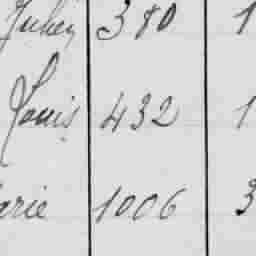 380 1
Louis 432 1
arie 1006 3